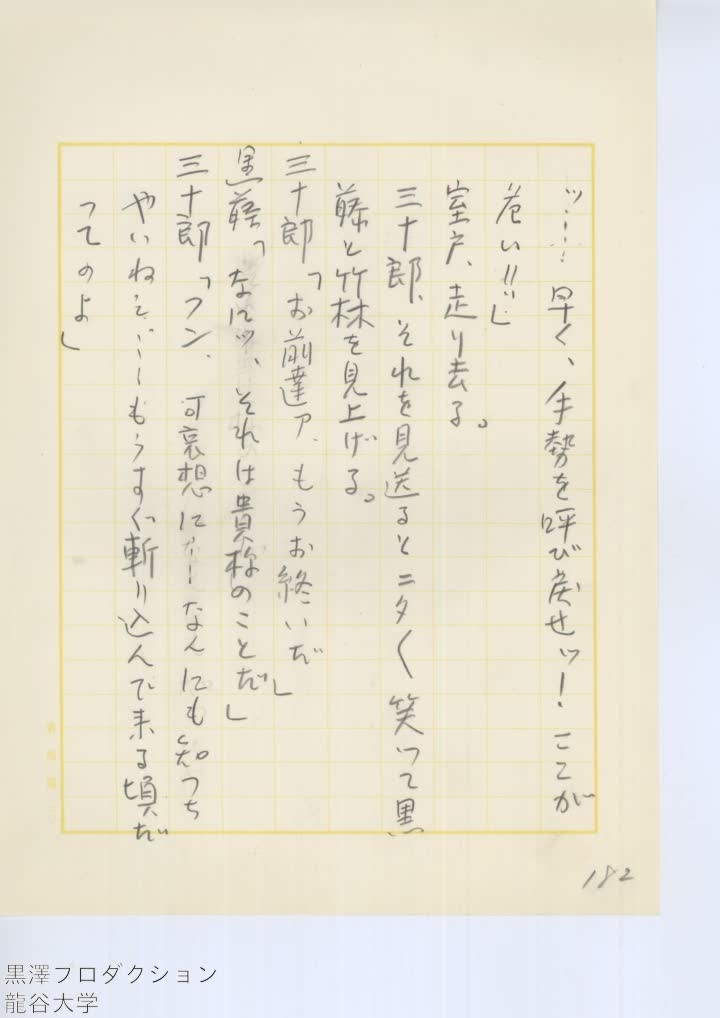 ッ……早く、手勢を呼び戻せッ！ここが
危い!!」
室戸、走り去る。
三十郎、それを見送るとニタ〱笑って黒
藤と竹林を見上げる。
三十郎「お前達ァ、もうお終いだ」
黒藤「なにッ、それは貴様のことだ」
三十郎「フン、可哀想に……なんにも知っち
ゃいねえ……もうすぐ斬り込んで来る頃だ
ってのよ」
182
黒澤プロダクション
龍谷大学